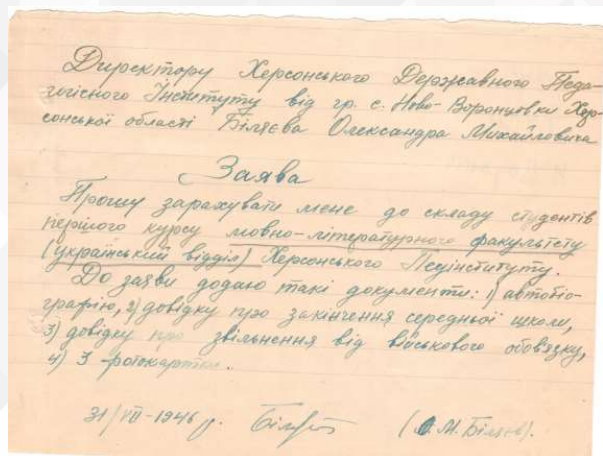 Директору Херсонського Державного Педа-
гогісного Інституту від гр. с. Ново-Воронцовки Хер-
сонської області Біляєва Олександра Михайловича
Заява
Прошу зарахувати мене до складу студентів
першого курсу мовно-літературного факультету
(український відділ) Херсонського Педінституту.
До заяви додаю такі документи: 1) автобіо-
графію, 2) довідку про закінчення середньої школи,
3) довідку про звільнення від військового обов'язку,
4) 3 -фотокартки.
31/VII-1946 р. (О.М. Біляєв).